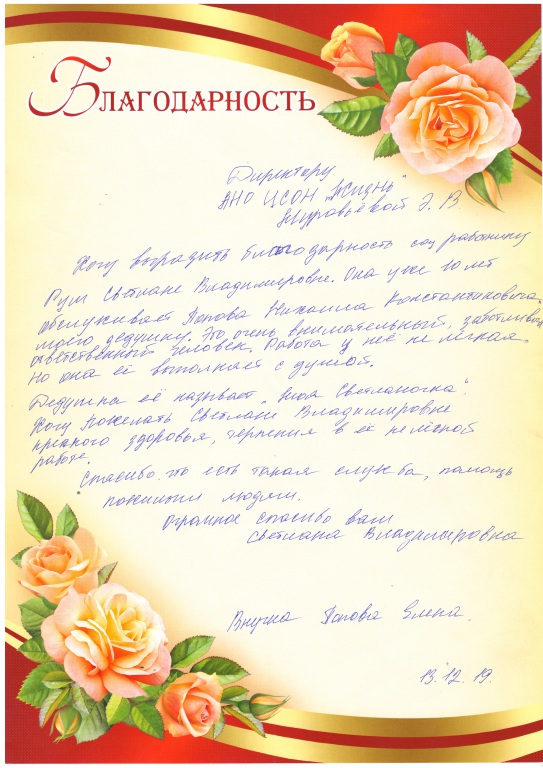 Благодарность
Директору
АНО ЦСОН "Жизнь"
Муравьёвой Э. В.
Хочу выразить благодарность соц работнику
Рум Светлане Владимировне. Она уже 10 лет
обслуживает Попова Михаила Константиновича.
моего дедушку. Это очень внимательный, заботливый
ответственный человек. Работа у неё не лёгкая.
Но она её выполняет с душой.
Дедушка её называет "моя Светланочка".
Хочу пожелать Светлане Владимировне
крепкого здоровья, терпения в её нелёгкой
работе.
Спасибо что есть такая служба, помощь
пожилым людям.
Огромное спасибо вам
Светлана Владимировна
Внучка Попова Елена.
13.12.19.